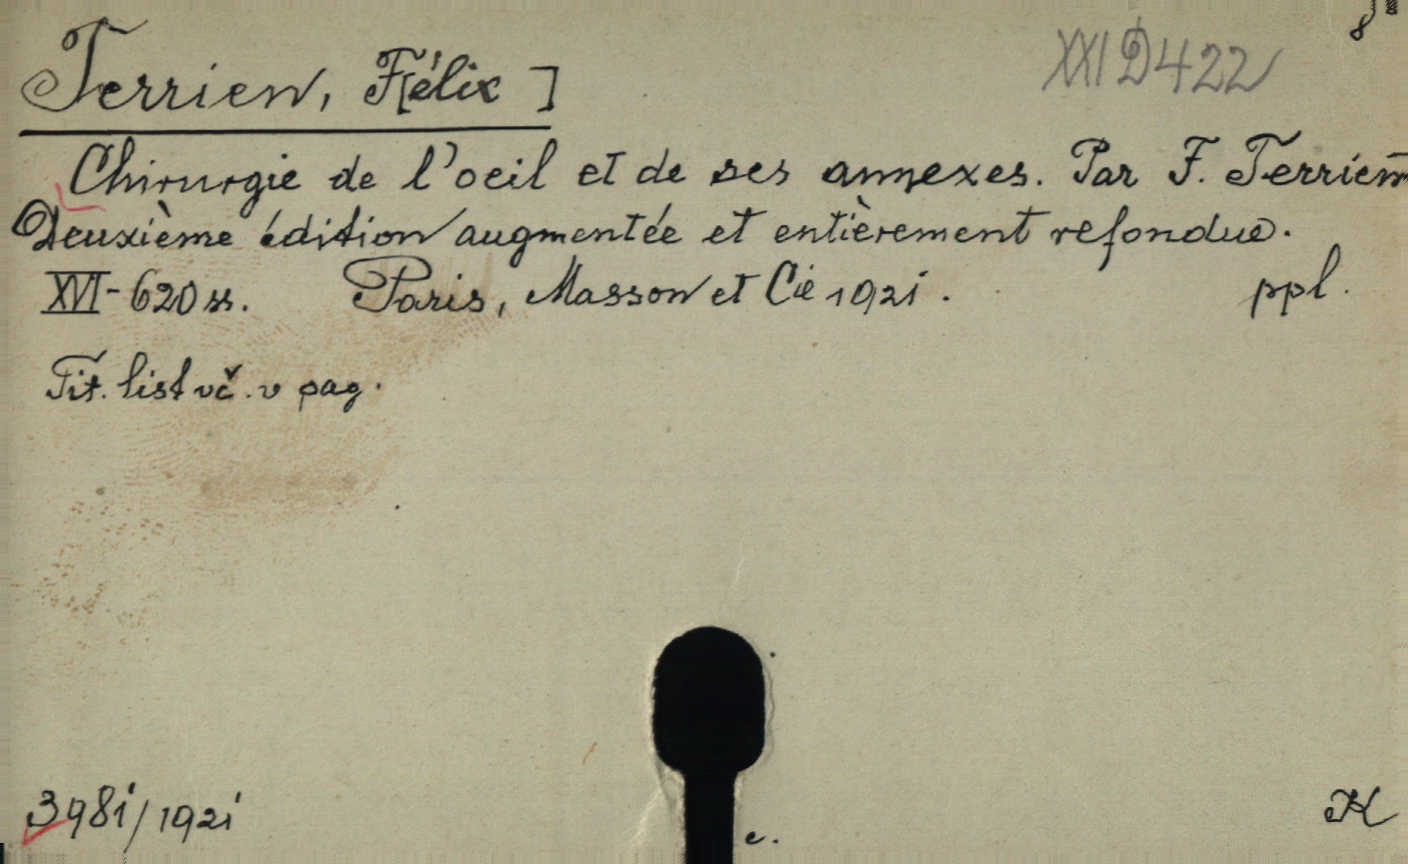 8°
XXI D 422
Terrien, F[élix]
Chirurgie de l'oeil et de ses annexes. Par F. Terrien
Deuxième édition augmentée et entièrement refondue.
XVI-620 ss. Paris, Masson et Cie 1921. ppl.
Tit. list vč. v pag.
3981/1921
c.
K